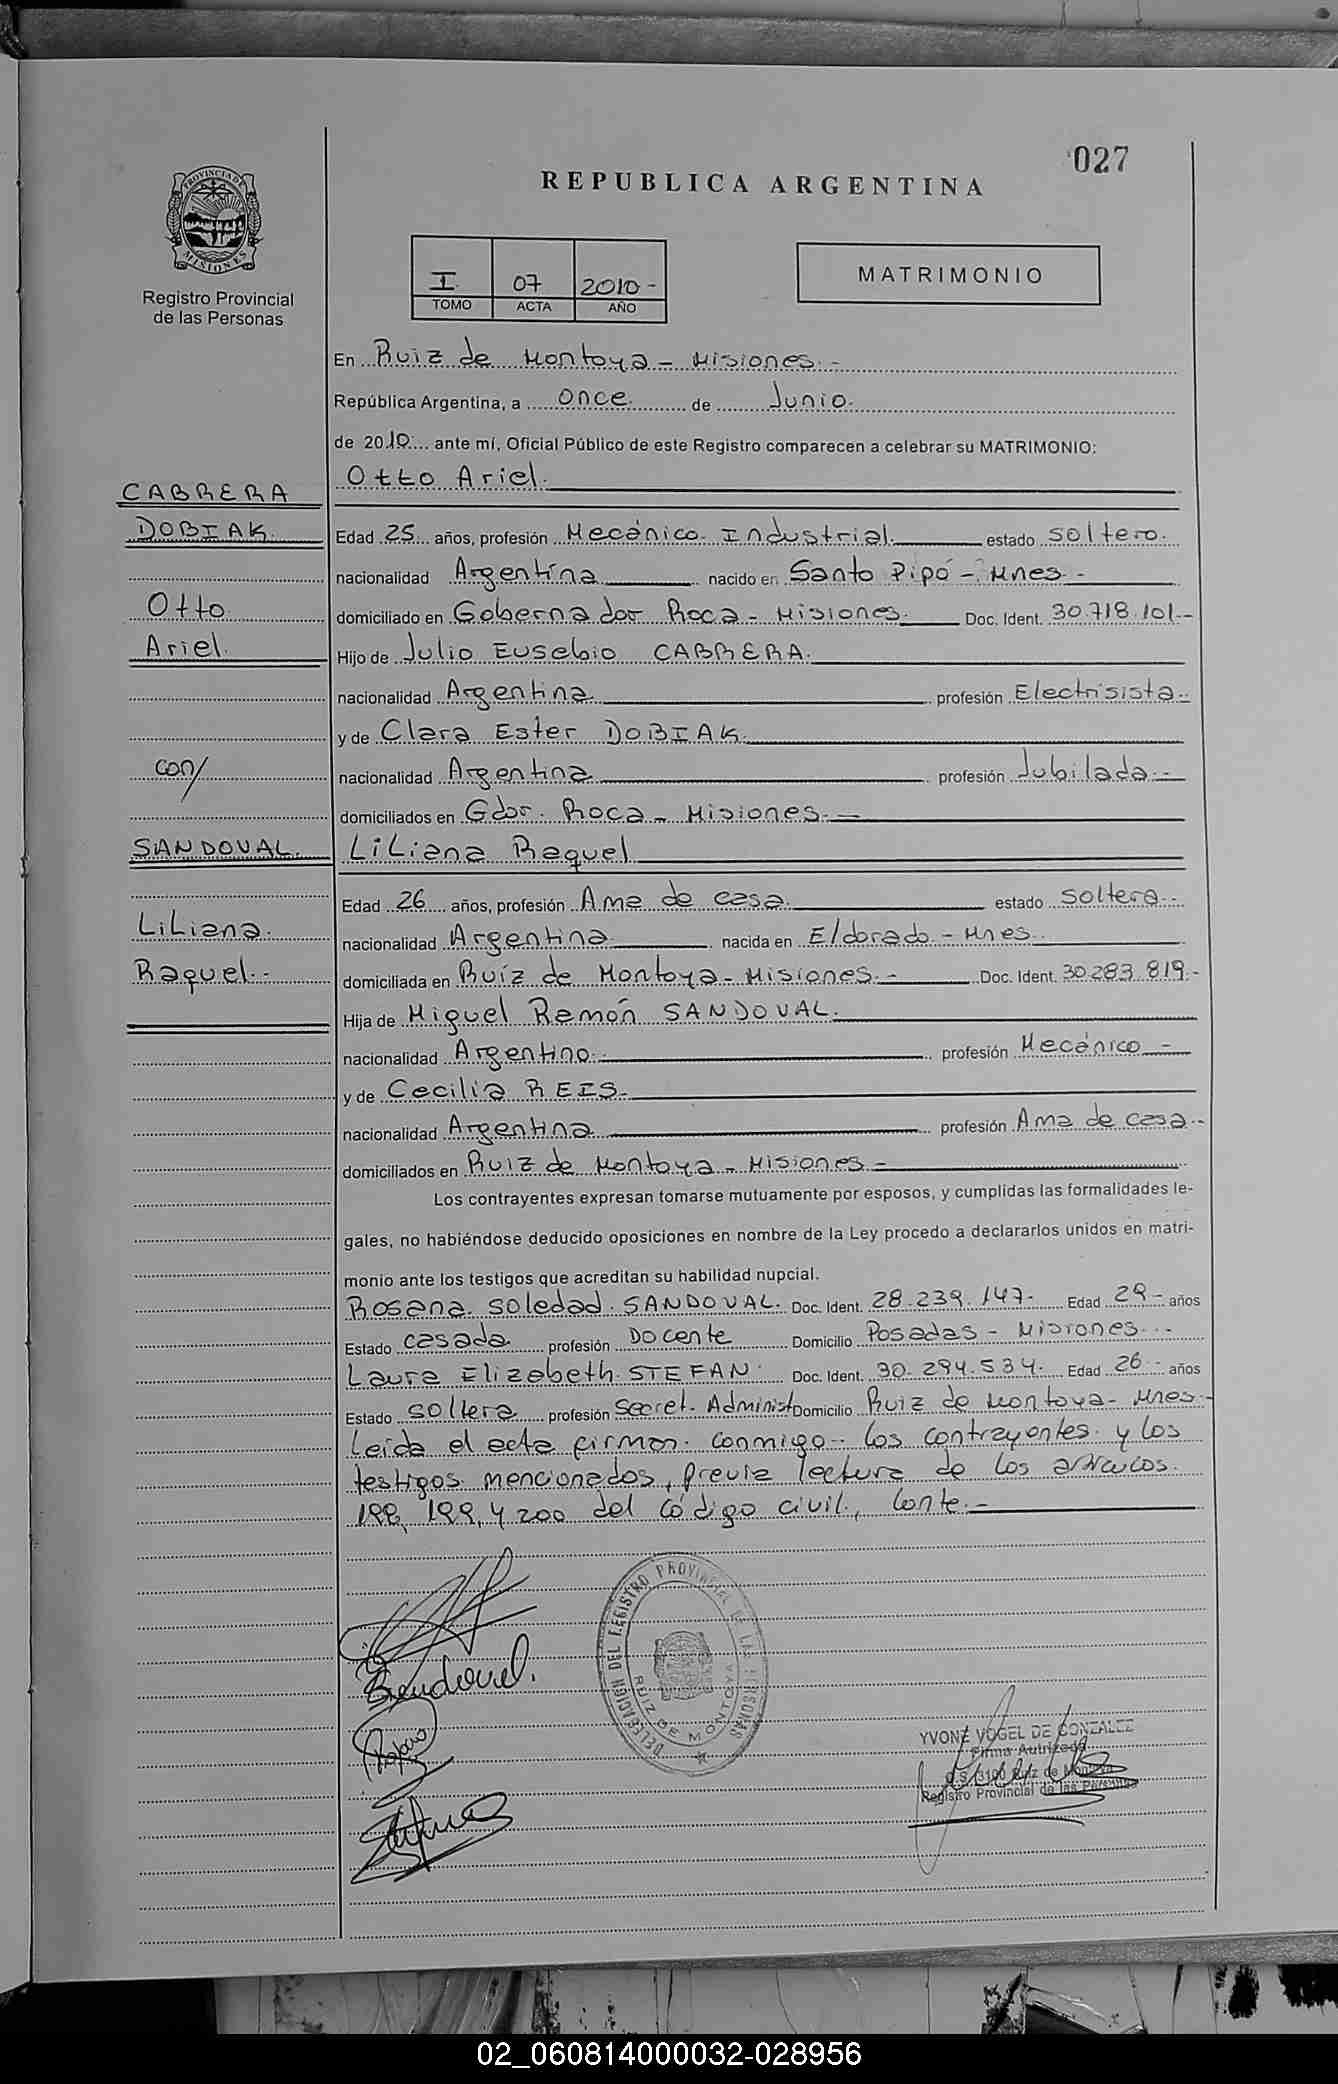 027
REPUBLICA ARGENTINA
PROVINCIA DE
MISIONES
Registro Provincial
de las Personas
I 07 2010-
TOMO ACTA AÑO
MATRIMONIO
En Ruiz de Montoya - Misiones.-
República Argentina, a once de Junio.
de 2010 ante mí, Oficial Público de este Registro comparecen a celebrar su MATRIMONIO:
CABRERA
DOBIAK.
Otto
Ariel.
con/
SANDOVAL.
LiLiana
Raquel.-
Otto Ariel.
Edad 25 años, profesión Mecánico Industrial. estado soltero.
nacionalidad Argentina nacido en Santo Pipó - Mnes.-
domiciliado en Gobernador Roca - Misiones. Doc. Ident. 30.718.101.-
Hijo de Julio Eusebio CABRERA.
nacionalidad Argentina. profesión Electrisista.-
y de Clara Ester DOBIAK.
nacionalidad Argentina profesión Jubilada.-
domiciliados en Gdor. Roca - Misiones.-
LiLiana Raquel
Edad 26 años, profesión Ama de casa. estado soltera.-
nacionalidad Argentina nacida en Eldorado - Mnes.
domiciliada en Ruíz de Montoya - Misiones.- Doc. Ident. 30.283.819.-
Hija de Miguel Ramón SANDOVAL.
nacionalidad Argentino. profesión Mecánico -
y de Cecilia REIS.
nacionalidad Argentina profesión Ama de casa.-
domiciliados en Ruiz de Montoya - Misiones.-
Los contrayentes expresan tomarse mutuamente por esposos, y cumplidas las formalidades le-
gales, no habiéndose deducido oposiciones en nombre de la Ley procedo a declararlos unidos en matri-
monio ante los testigos que acreditan su habilidad nupcial.
Rosana Soledad SANDOVAL. Doc. Ident. 28.239.147. Edad 29- años
Estado casada profesión Docente Domicilio Posadas - Misiones.-
Laura Elizabeth STEFAN Doc. Ident. 30.294.534. Edad 26- años
Estado soltera profesión Secret. Administ Domicilio Ruiz de Montoya - Mnes.-
Leída el acta firman conmigo los contrayentes y los
testigos mencionados, previa lectura de los artículos
198, 199, y 200 del Código civil, Conte.-
Sandoval.
DELEGACION DEL REGISTRO PROVINCIAL DE LAS PERSONAS
RUIZ DE MONTOYA
YVONE VOGEL DE GONZALEZ
Firma Autrizada
O.S. 3100 Ruiz de Montoya
Registro Provincial de las Personas
02_060814000032-028956